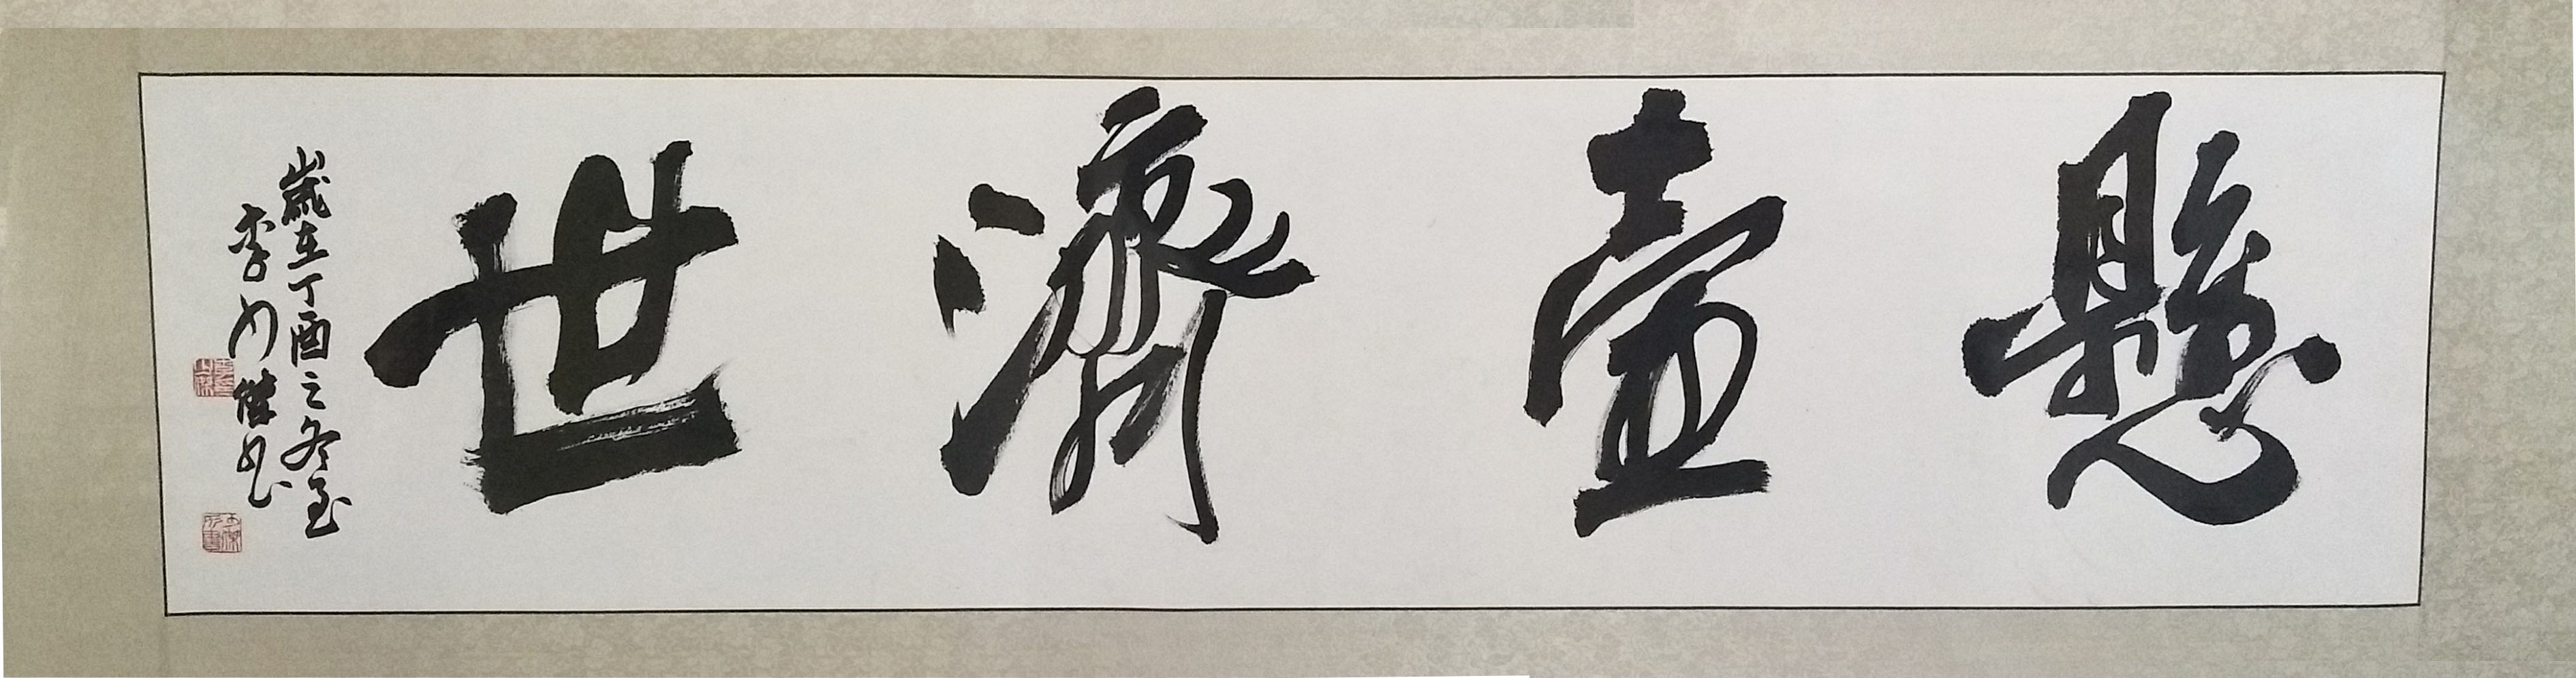 懸壺濟世
歲在丁酉之冬至
李